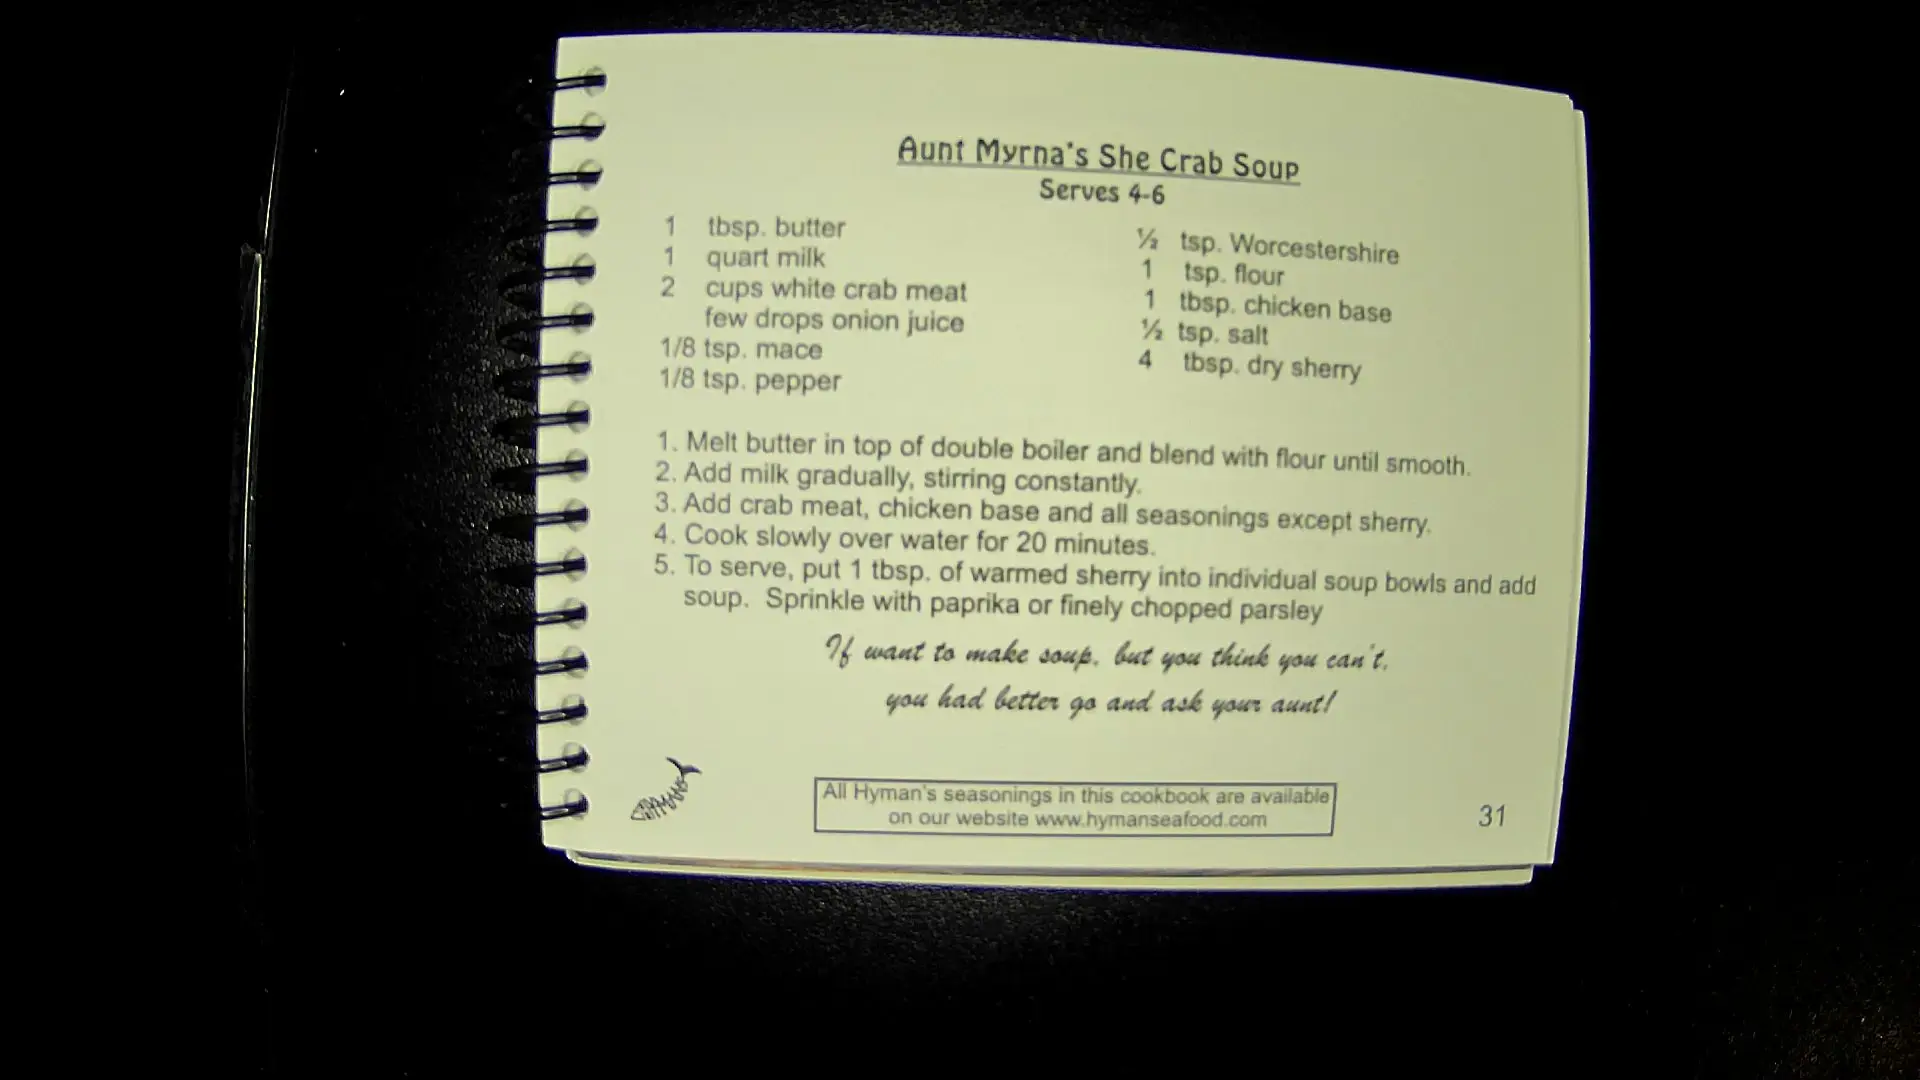 Aunt Myrna's She Crab Soup
Serves 4-6
1 tbsp. butter
1 quart milk
2 cups white crab meat
few drops onion juice
1/8 tsp. mace
1/8 tsp. pepper
½ tsp. Worcestershire
1 tsp. flour
1 tbsp. chicken base
½ tsp. salt
4 tbsp. dry sherry
1. Melt butter in top of double boiler and blend with flour until smooth.
2. Add milk gradually, stirring constantly.
3. Add crab meat, chicken base and all seasonings except sherry.
4. Cook slowly over water for 20 minutes.
5. To serve, put 1 tbsp. of warmed sherry into individual soup bowls and add
soup. Sprinkle with paprika or finely chopped parsley
If want to make soup, but you think you can't,
you had better go and ask your aunt!
All Hyman's seasonings in this cookbook are available
on our website www.hymanseafood.com
31